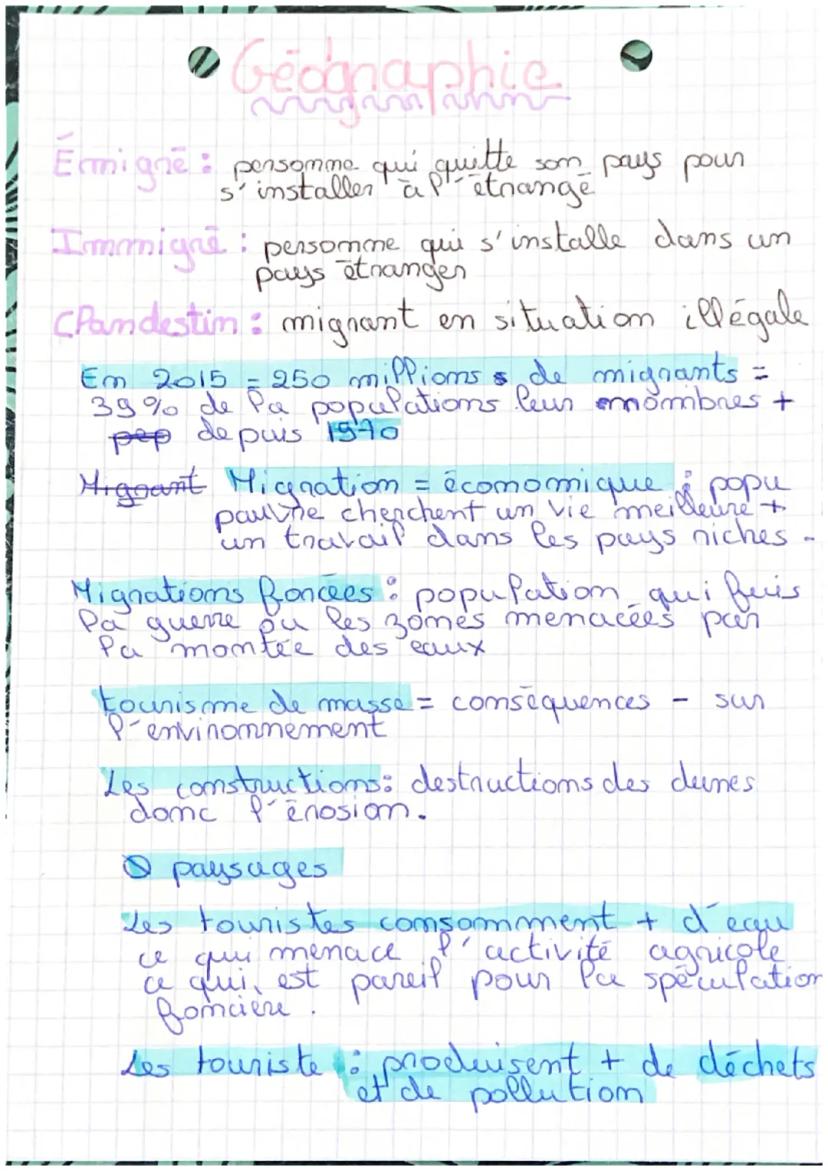 Géographie
Émigré : personne qui quitte son pays pour
s'installer à l'étrangé
Immigré : personne qui s'installe dans un
pays étranger
Clandestin : migrant en situation illégale
En 2015 = 250 millions de migrants =
39% de la populations leur nombres +
pep depuis 1970
Migoant Migration = économique : popu
pauvre cherchent un vie meilleure +
un travail dans les pays riches -
Migrations forcées : population qui fuis
la guerre ou les zones menacées par
la montée des eaux
tourisme de masse = conséquences - sur
l'environnement
Les constructions : destructions des dunes
donc l'érosion.
paysages
Les touristes consomment + d'eau
ce qui menace l'activité agricole
ce qui est pareil pour la spéculation
foncière.
Les touriste : produisent + de déchets
et de pollution